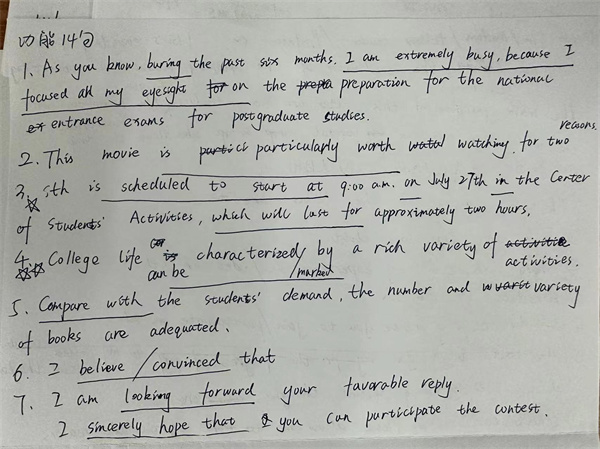 功能14句
1. As you know, buring the past six months, I am extremely busy, because I
focused all my eyesight on the preparation for the national
entrance exams for postgraduate studses.
2. This movie is particularly worth watching for two reasons.
3. sth is scheduled to start at 9:00 a.m. on July 27th in the Center
of Students' Activities, which will last for approximately two hours.
4. College life can be characterized/marked by a rich variety of activities.
5. Compare with the students' demand, the number and variety
of books are adequated.
6. I believe/convinced that
7. I am looking forward your favorable reply.
I sincerely hope that you can participate the contest.